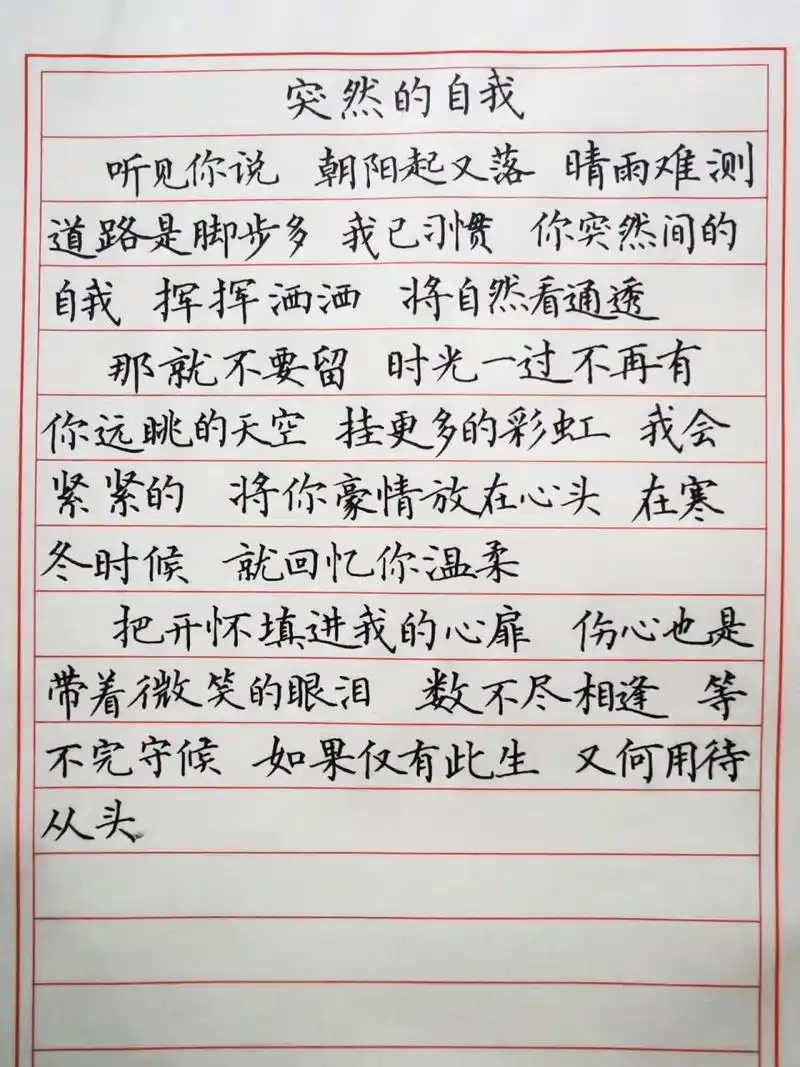 突然的自我
听见你说 朝阳起又落 晴雨难测
道路是脚步多 我已习惯 你突然间的
自我 挥挥洒洒 将自然看通透
那就不要留 时光一过不再有
你远眺的天空 挂更多的彩虹 我会
紧紧的 将你豪情放在心头 在寒
冬时候 就回忆你温柔
把开怀填进我的心扉 伤心也是
带着微笑的眼泪 数不尽相逢 等
不完守候 如果仅有此生 又何用待
从头